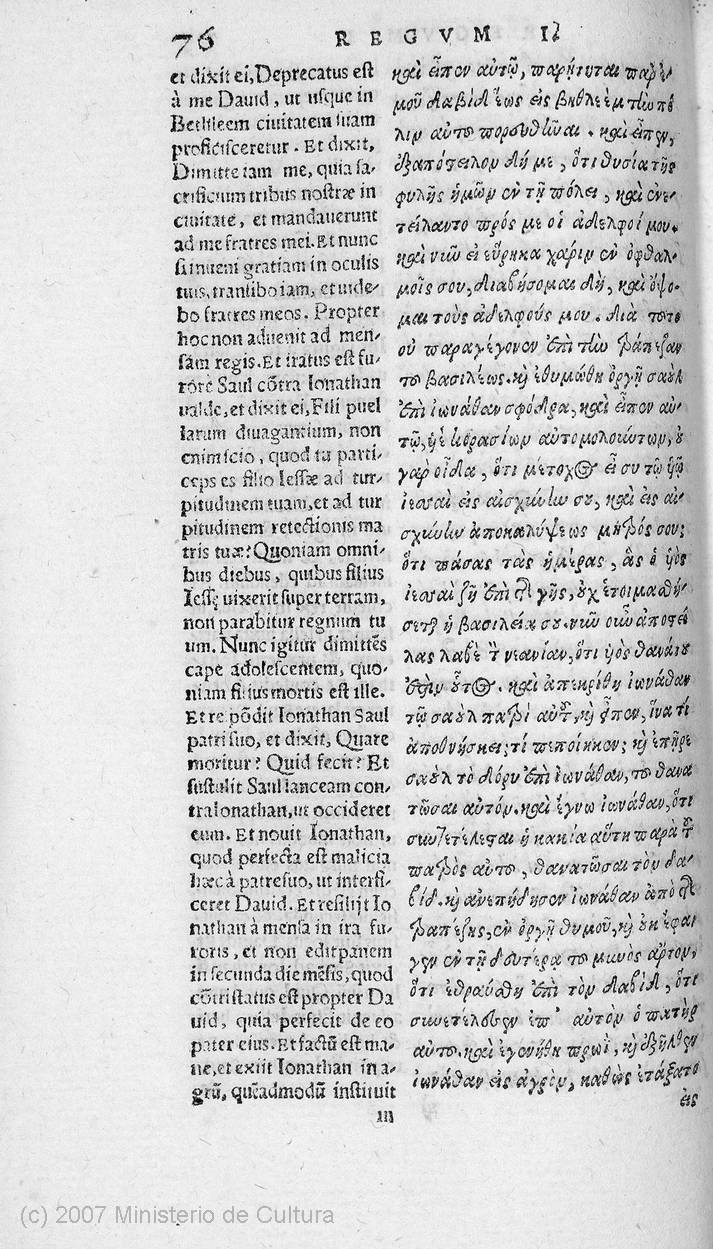 76 REGVM I.
et dixit ei, Deprecatus est
à me Dauid, ut usque in
Bethleem ciuitatem suam
proficisceretur. Et dixit,
Dimitte iam me, quia sa-
crificium tribus nostræ in
ciuitate, et mandauerunt
ad me fratres mei. Et nunc
si inueni gratiam in oculis
tuis, transibo iam, et uide-
bo fratres meos. Propter
hoc non aduenit ad men-
sam regis. Et iratus est fu-
rore Saul cõtra Ionathan
ualde, et dixit ei, Fili puel
larum diuagantium, non
enim scio, quod tu parti-
ceps es filio Iessæ ad tur-
pitudinem tuam, et ad tur
pitudinem retectionis ma
tris tuæ? Quoniam omni-
bus diebus, quibus filius
Iessę uixerit super terram,
non parabitur regnum tu
um. Nunc igitur dimittẽs
cape adolescentem, quo-
niam filius mortis est ille.
Et re põdit Ionathan Saul
patri suo, et dixit, Quare
moritur? Quid fecit? Et
sustulit Saul lanceam con-
tra Ionathan, ut occideret
eum. Et nouit Ionathan,
quod perfecta est malicia
hæc à patre suo, ut interfi-
ceret Dauid. Et resilijt Io
nathan à mensa in ira fu-
roris, et non edit panem
in secunda die mẽsis, quod
cõtristatus est propter Da
uid, quia perfecit de eo
pater eius. Et factũ est ma-
ne, et exiit Ionathan in a-
grũ, quẽadmodũ instituit
in
καὶ εἶπεν αὐτῷ, παρῄτηται παρ᾽ ἐ-
μοῦ δαβὶδ ἕως εἰς βηθλεὲμ τὴν πό
λιν αὐτοῦ πορευθῆναι. καὶ εἶπεν,
ἐξαπόστειλον δή με, ὅτι θυσία τῆς
φυλῆς ἡμῶν ἐν τῇ πόλει, καὶ ἐνε-
τείλαντο πρός με οἱ ἀδελφοί μου.
καὶ νῦν εἰ εὕρηκα χάριν ἐν ὀφθαλ-
μοῖς σου, διαβήσομαι δή, καὶ ὄψο-
μαι τοὺς ἀδελφούς μου. διὰ τοῦτο
οὐ παραγέγονεν ἐπὶ τὴν τράπεζαν
τοῦ βασιλέως. καὶ ἐθυμώθη ὀργῇ σαοὺλ
ἐπὶ ἰωνάθαν σφόδρα, καὶ εἶπεν αὐ-
τῷ, υἱὲ κορασίων αὐτομολούντων, οὐ
γὰρ οἶδα, ὅτι μέτοχος εἶ σὺ τῷ υἱῷ
ἰεσσαὶ εἰς αἰσχύνην σου, καὶ εἰς αἰ-
σχύνην ἀποκαλύψεως μητρός σου;
ὅτι πάσας τὰς ἡμέρας, ἃς ὁ υἱὸς
ἰεσσαὶ ζῇ ἐπὶ τῆς γῆς, οὐχ ἑτοιμασθή-
σεται ἡ βασιλεία σου. νῦν οὖν ἀποστεί
λας λαβὲ τὸν νεανίαν, ὅτι υἱὸς θανάτου
ἐστὶν οὗτος. καὶ ἀπεκρίθη ἰωνάθαν
τῷ σαοὺλ πατρὶ αὐτοῦ, καὶ εἶπεν, ἵνα τί
ἀποθνήσκει; τί πεποίηκεν; καὶ ἐπῆρε
σαοὺλ τὸ δόρυ ἐπὶ ἰωνάθαν, τοῦ θανα
τῶσαι αὐτόν. καὶ ἔγνω ἰωνάθαν, ὅτι
συντετέλεσται ἡ κακία αὕτη παρὰ τοῦ
πατρὸς αὐτοῦ, θανατῶσαι τὸν δα-
βίδ. καὶ ἀνεπήδησεν ἰωνάθαν ἀπὸ τῆς
τραπέζης, ἐν ὀργῇ θυμοῦ, καὶ οὐκ ἔφα-
γεν ἐν τῇ δευτέρᾳ τοῦ μηνὸς ἄρτον,
ὅτι ἐθραύσθη ἐπὶ τὸν δαβίδ, ὅτι
συνετέλεσεν ἐπ᾽ αὐτὸν ὁ πατὴρ
αὐτοῦ. καὶ ἐγενήθη πρωῒ, καὶ ἐξῆλθεν
ἰωνάθαν εἰς ἀγρὸν, καθὼς ἐτάξατο
εἰς
(c) 2007 Ministerio de Cultura